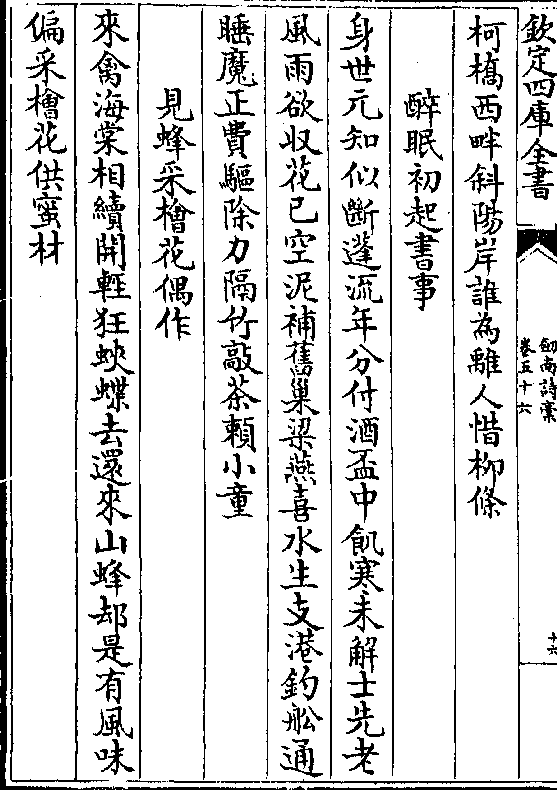 欽定四庫全書
劒南詩稾
卷五十六
十六
柯橋西畔斜陽岸誰為離人惜柳條
醉眠初起書事
身世元知似斷蓬流年分付酒盃中飢寒未解士先老
風雨欲収花已空泥補舊巢梁燕喜水生支港釣船通
睡魔正費驅除力隔竹敲茶頼小童
見蜂采檜花偶作
來禽海棠相續開輕狂蛺蝶去還來山蜂却是有風味
偏采檜花供蜜材